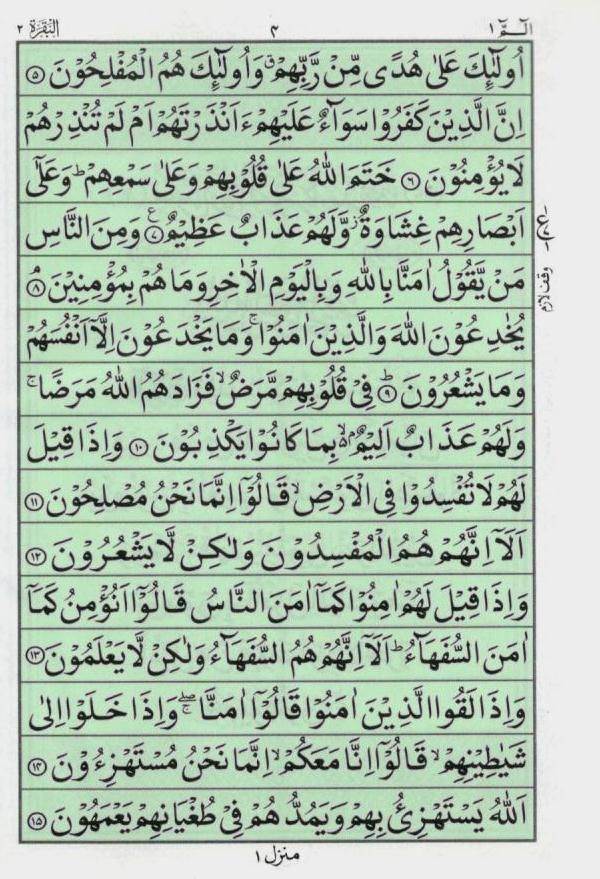 الٓـمّٓ ١ ۴ الْبَقَرَة ٢
اُولٰٓئِكَ عَلٰى هُدًى مِّنْ رَّبِّهِمْ ۗ وَاُولٰٓئِكَ هُمُ الْمُفْلِحُوْنَ ۝۵
اِنَّ الَّذِيْنَ كَفَرُوْا سَوَآءٌ عَلَيْهِمْ ءَاَنْذَرْتَهُمْ اَمْ لَمْ تُنْذِرْهُمْ
لَا يُؤْمِنُوْنَ ۝۶ خَتَمَ اللّٰهُ عَلٰى قُلُوْبِهِمْ وَعَلٰى سَمْعِهِمْ ؕ وَعَلٰٓى
اَبْصَارِهِمْ غِشَاوَةٌ ۫ وَّلَهُمْ عَذَابٌ عَظِيْمٌ ۝۷ ع وَمِنَ النَّاسِ
مَنْ يَّقُوْلُ اٰمَنَّا بِاللّٰهِ وَبِالْيَوْمِ الْاٰخِرِ وَمَا هُمْ بِمُؤْمِنِيْنَ ۝۸ ۘ
وقف لازم
يُخٰدِعُوْنَ اللّٰهَ وَالَّذِيْنَ اٰمَنُوْا ۚ وَمَا يَخْدَعُوْنَ اِلَّآ اَنْفُسَهُمْ
وَمَا يَشْعُرُوْنَ ۝۹ ؕ فِيْ قُلُوْبِهِمْ مَّرَضٌ ۙ فَزَادَهُمُ اللّٰهُ مَرَضًا ۚ
وَلَهُمْ عَذَابٌ اَلِيْمٌ ۢ ۙ بِمَا كَانُوْا يَكْذِبُوْنَ ۝۱۰ وَاِذَا قِيْلَ
لَهُمْ لَا تُفْسِدُوْا فِى الْاَرْضِ ۙ قَالُوْٓا اِنَّمَا نَحْنُ مُصْلِحُوْنَ ۝۱۱
اَلَآ اِنَّهُمْ هُمُ الْمُفْسِدُوْنَ وَلٰكِنْ لَّا يَشْعُرُوْنَ ۝۱۲
وَاِذَا قِيْلَ لَهُمْ اٰمِنُوْا كَمَآ اٰمَنَ النَّاسُ قَالُوْٓا اَنُؤْمِنُ كَمَآ
اٰمَنَ السُّفَهَآءُ ؕ اَلَآ اِنَّهُمْ هُمُ السُّفَهَآءُ وَلٰكِنْ لَّا يَعْلَمُوْنَ ۝۱۳
وَاِذَا لَقُوا الَّذِيْنَ اٰمَنُوْا قَالُوْٓا اٰمَنَّا ۖۚ وَاِذَا خَلَوْا اِلٰى
شَيٰطِيْنِهِمْ ۙ قَالُوْٓا اِنَّا مَعَكُمْ ۙ اِنَّمَا نَحْنُ مُسْتَهْزِءُوْنَ ۝۱۴
اَللّٰهُ يَسْتَهْزِئُ بِهِمْ وَيَمُدُّهُمْ فِيْ طُغْيَانِهِمْ يَعْمَهُوْنَ ۝۱۵
منزل ۱